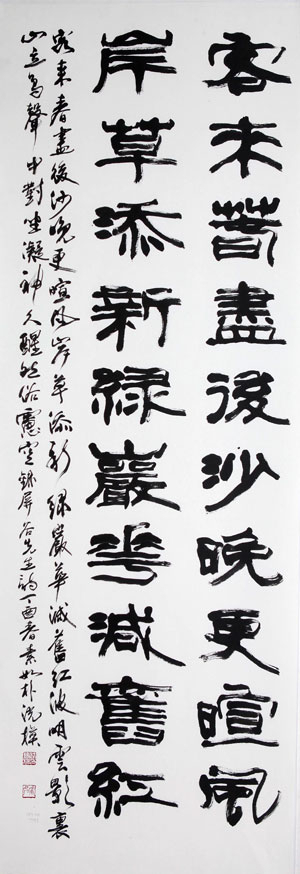 客来萅盡後沙晚更暄風
岸草添新綠巖花減舊紅
客来春盡後沙晚更暄風岸草添新綠巖華減舊紅波明雲影裏
山立鳥聲中對坐凝神久醒然俗慮空錄屏谷先生詩丁酉春素如朴